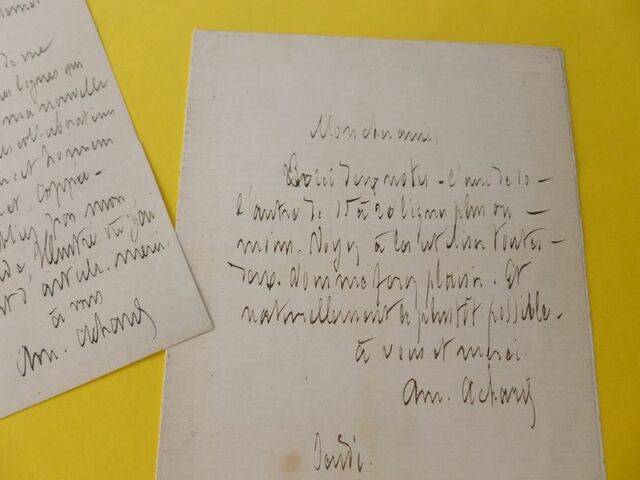 de me
lignes qui
ma nouvelle
collaborateurs
et homme
et,
pas mon
illustré où j'ai
d'article. merci.
à vous
Am. Achard
Mon cher ami,
Voici deux notes - l'une de 10 -
l'autre de 15 à 20 lignes plus ou -
moins. Voyez à les utiliser toutes -
deux. Vous me ferez plaisir. Et
naturellement le plustôt possible -
à vous et merci.
Am. Achard
Jeudi.